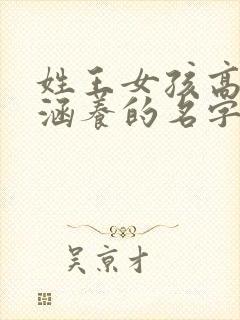 姓王女孩高
涵养的名字
吴京才